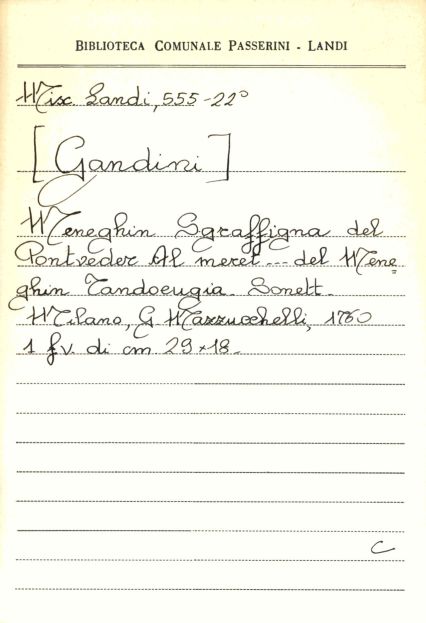 BIBLIOTECA COMUNALE PASSERINI - LANDI
Misc. Landi, 555-22°
[Gandini]
Meneghin Sgraffigna del
Pontveder Al meret... del Mene=
ghin Tandoeugia. Sonett.
Milano, G. Mazzucchelli, 1760
1 f.v. di cm 29×18.
C